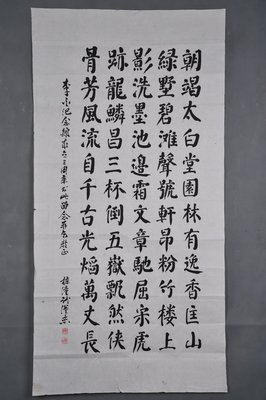 朝謁太白堂園林有逸香匡山
綠墅碧灘聲號軒昂粉竹楼上
影洗墨池邊霜文章馳屈宋虎
跡龍鱗昌三杯倒五嶽飄然俠
骨芳風流自千古光焰萬丈長
李白纪念馆成立三周年书此留念